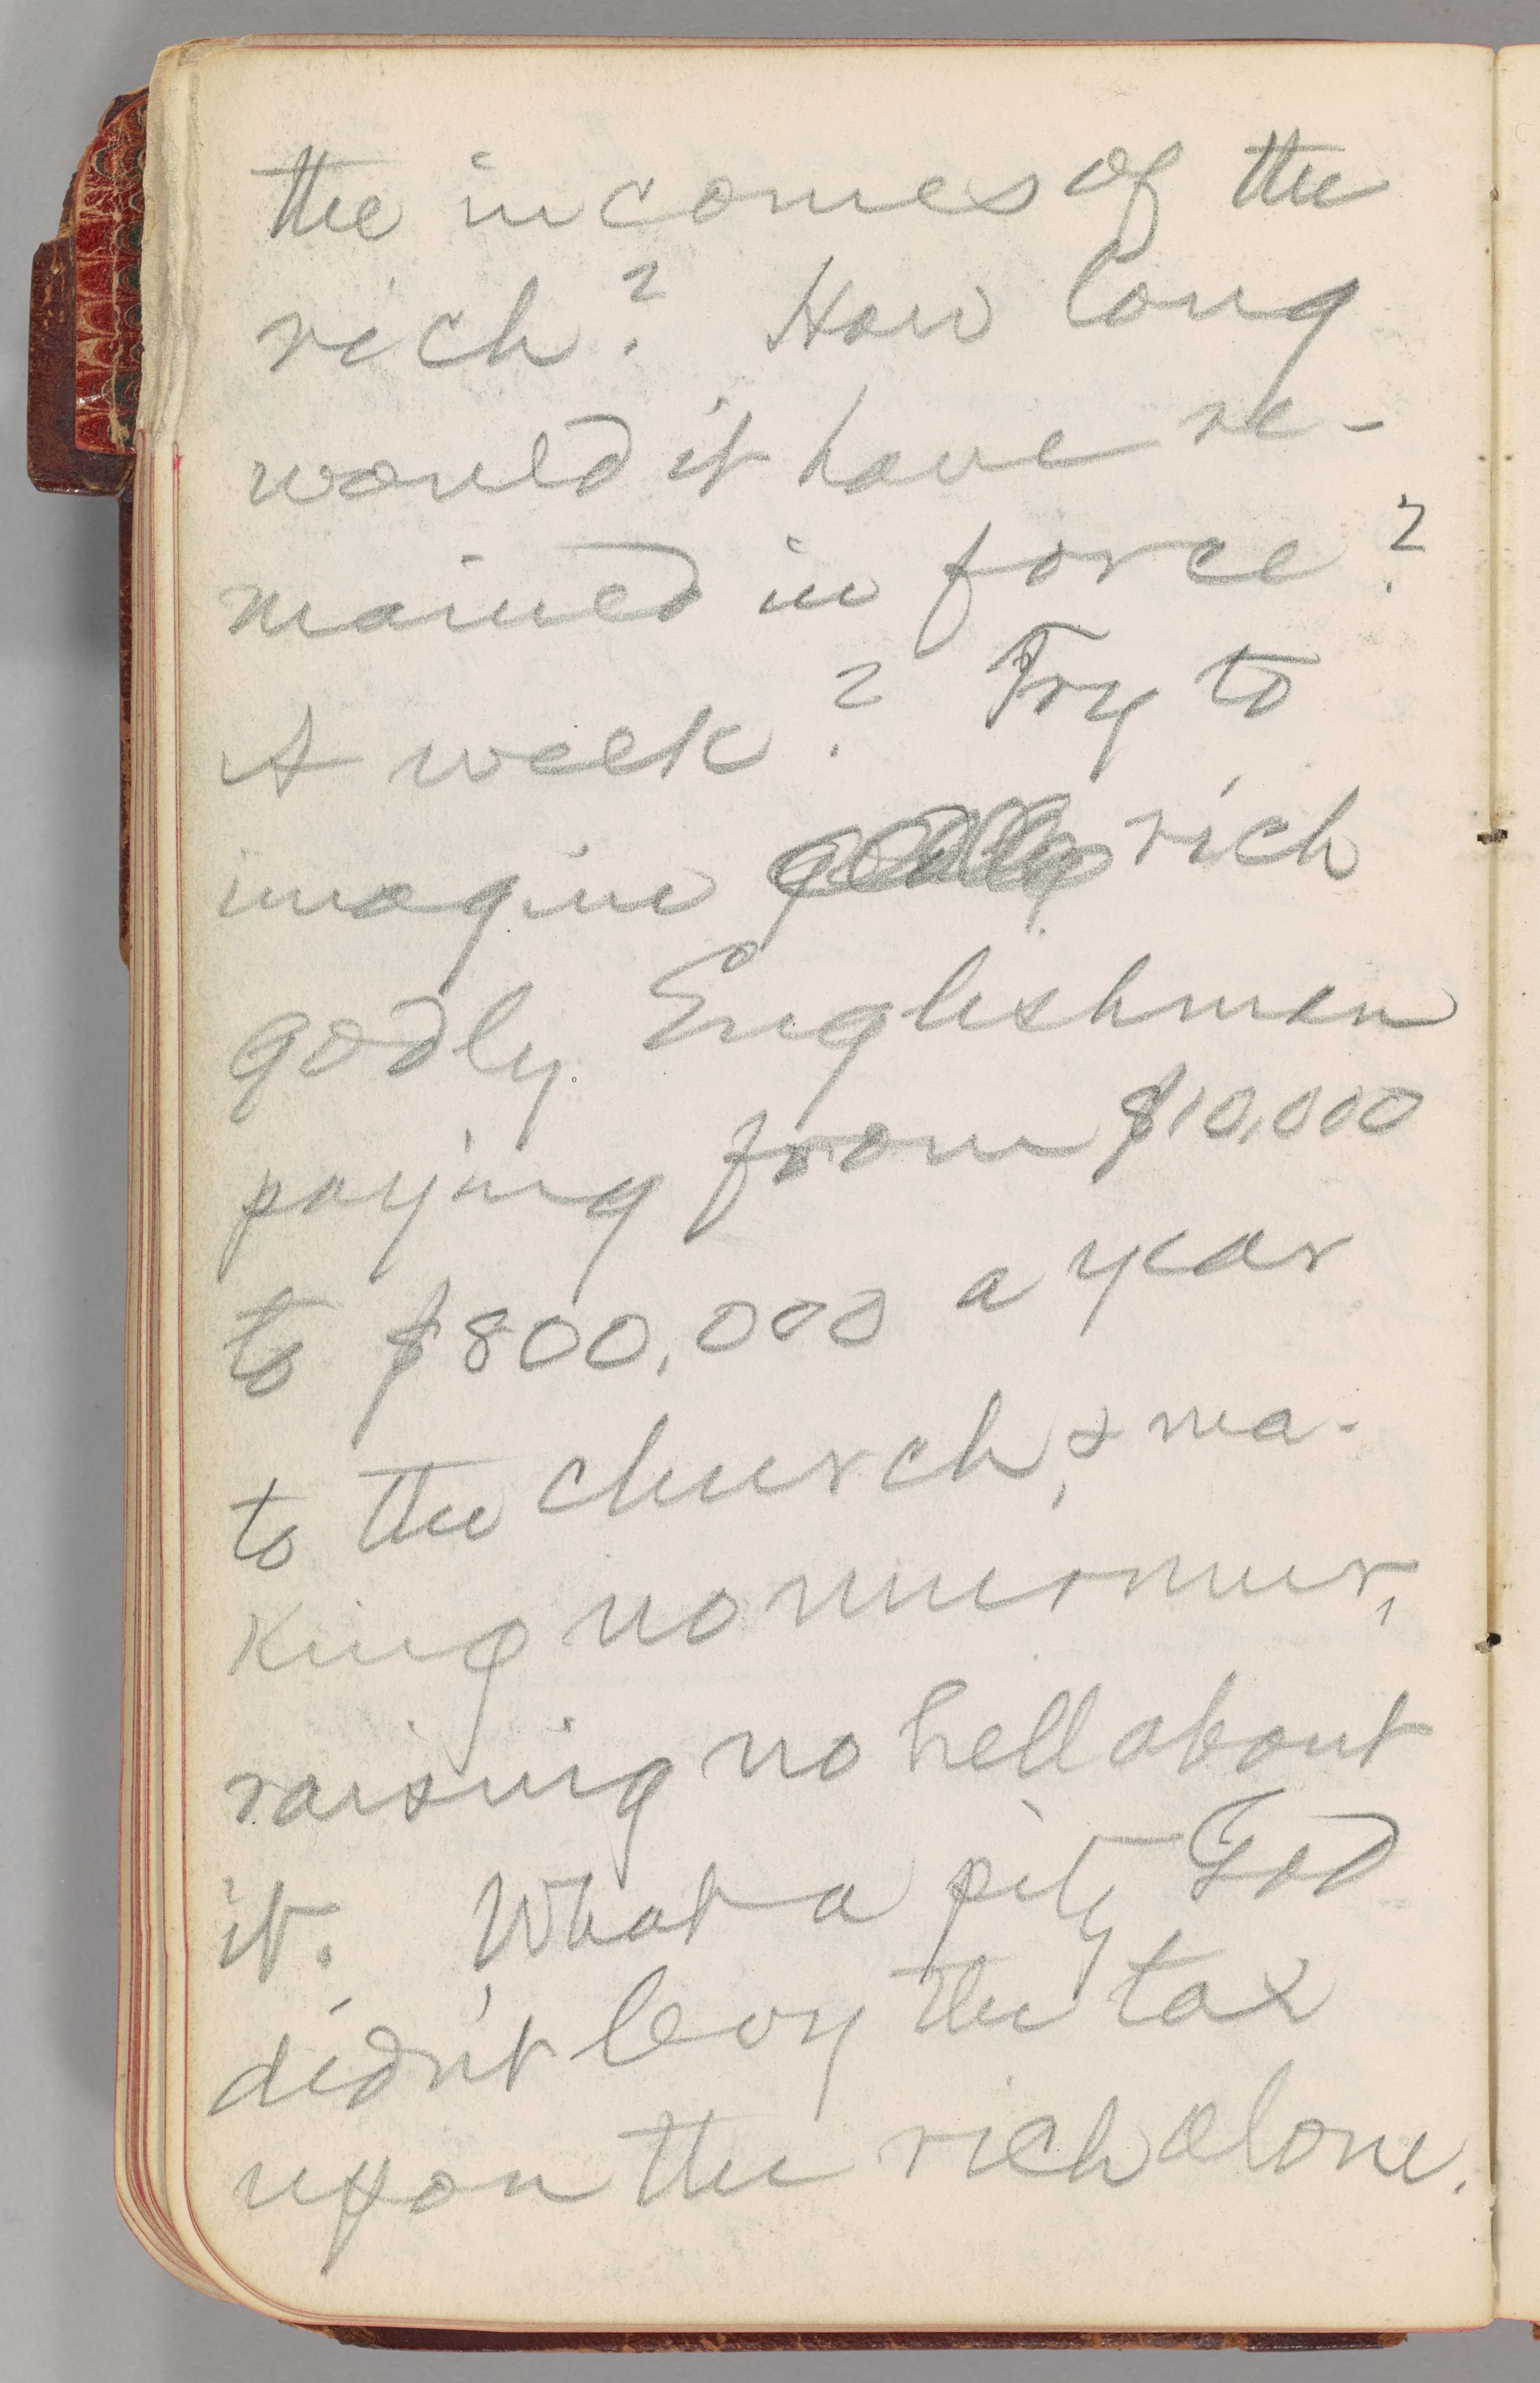 the incomes of the
rich? How long
would it have re-
mained in force?
A week? Try to
imagine godly rich
godly Englishmen
paying from $10,000
to $800,000 a year
to the church, & ma-
king no murmur,
raising no hell about
it. What a pity God
didn't levy the tax
upon the rich alone.